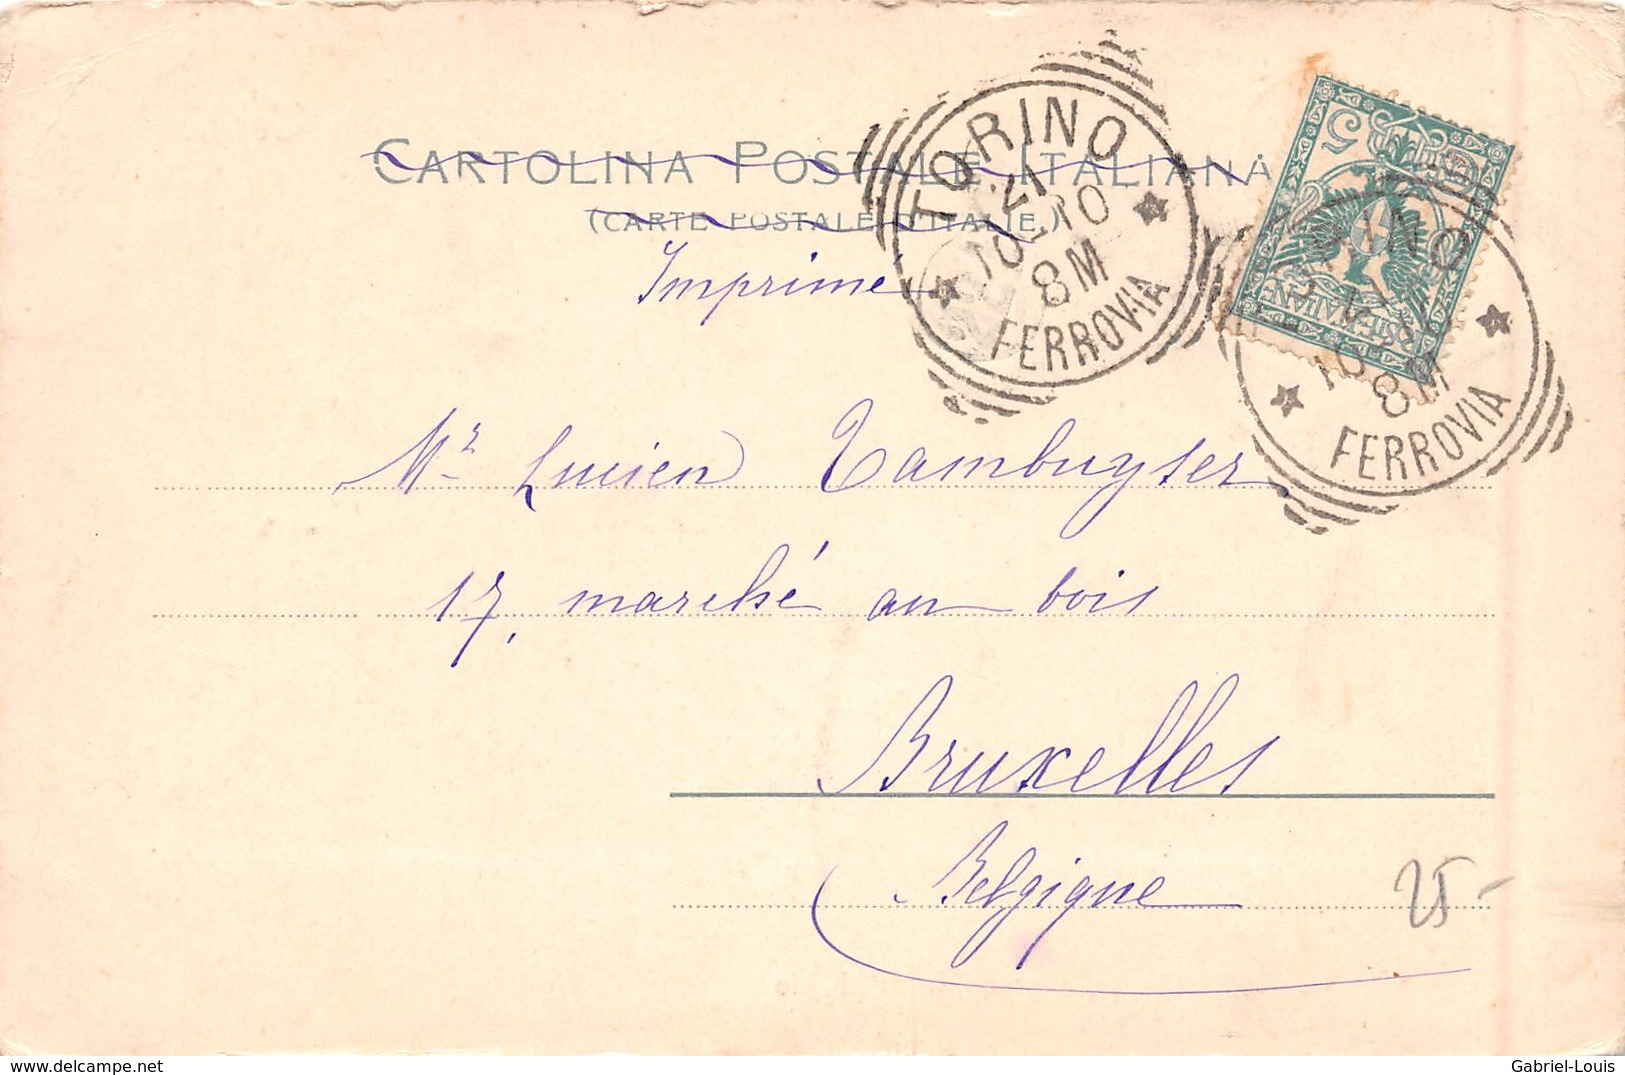 CARTOLINA POSTALE ITALIANA
(CARTE POSTALE D'ITALIE)
Imprimé
TORINO
21
10-10
8M
FERROVIA
5
FERROVIA
8M
Mr Lucien Tambuyser
17, marché au bois
Bruxelles
Belgique
25-
delcampe.net
Gabriel-Louis